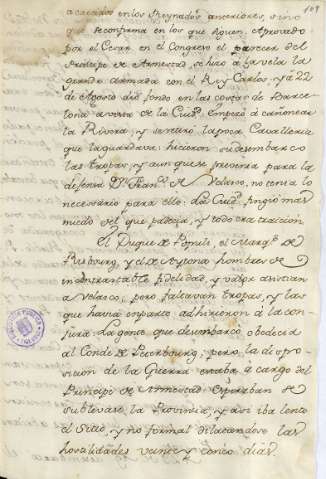 109
acaecidos en los Reynados anteriores, sino
que se confirma en los que siguen. Aprovado
por el Cesar en el Congreso el parecer del
Principe de Armestad, se hizo à la vela la
grande Armada con el Rey Carlos, y à 22
de Agosto diò fondo en las costas de Barce-
lona à vista de la Ciud. empezò à cañonear
la Rivera, y se retirò la poca Cavalleria
que la guardava: hicieron su desembarco
las tropas, y aunque se prevenia para la
defensa Dn. Fran.co de Velasco, no tenia lo
necesario para ello. La Ciud. fingiò mas
miedo del que padecia, y todo era traicion.
El Duque de Populi, el Marq.s de
Risbourg, y el de Aytona hombres de
incontrastable fidelidad, y valor asistian
à Velasco, pero faltavan tropas, y las
que havia en parte adhirieron à la con-
jura. La gente que desembarcò obedecia
al Conde de Peterbourg, pero la dispo-
sicion de la Guerra estaba à cargo del
Principe de Armestad. Esperaban se
sublevase la Provincia, y asi iba lento
el Sitio, y no formal dilatandose las
hostilidades veinte y cinco dias.